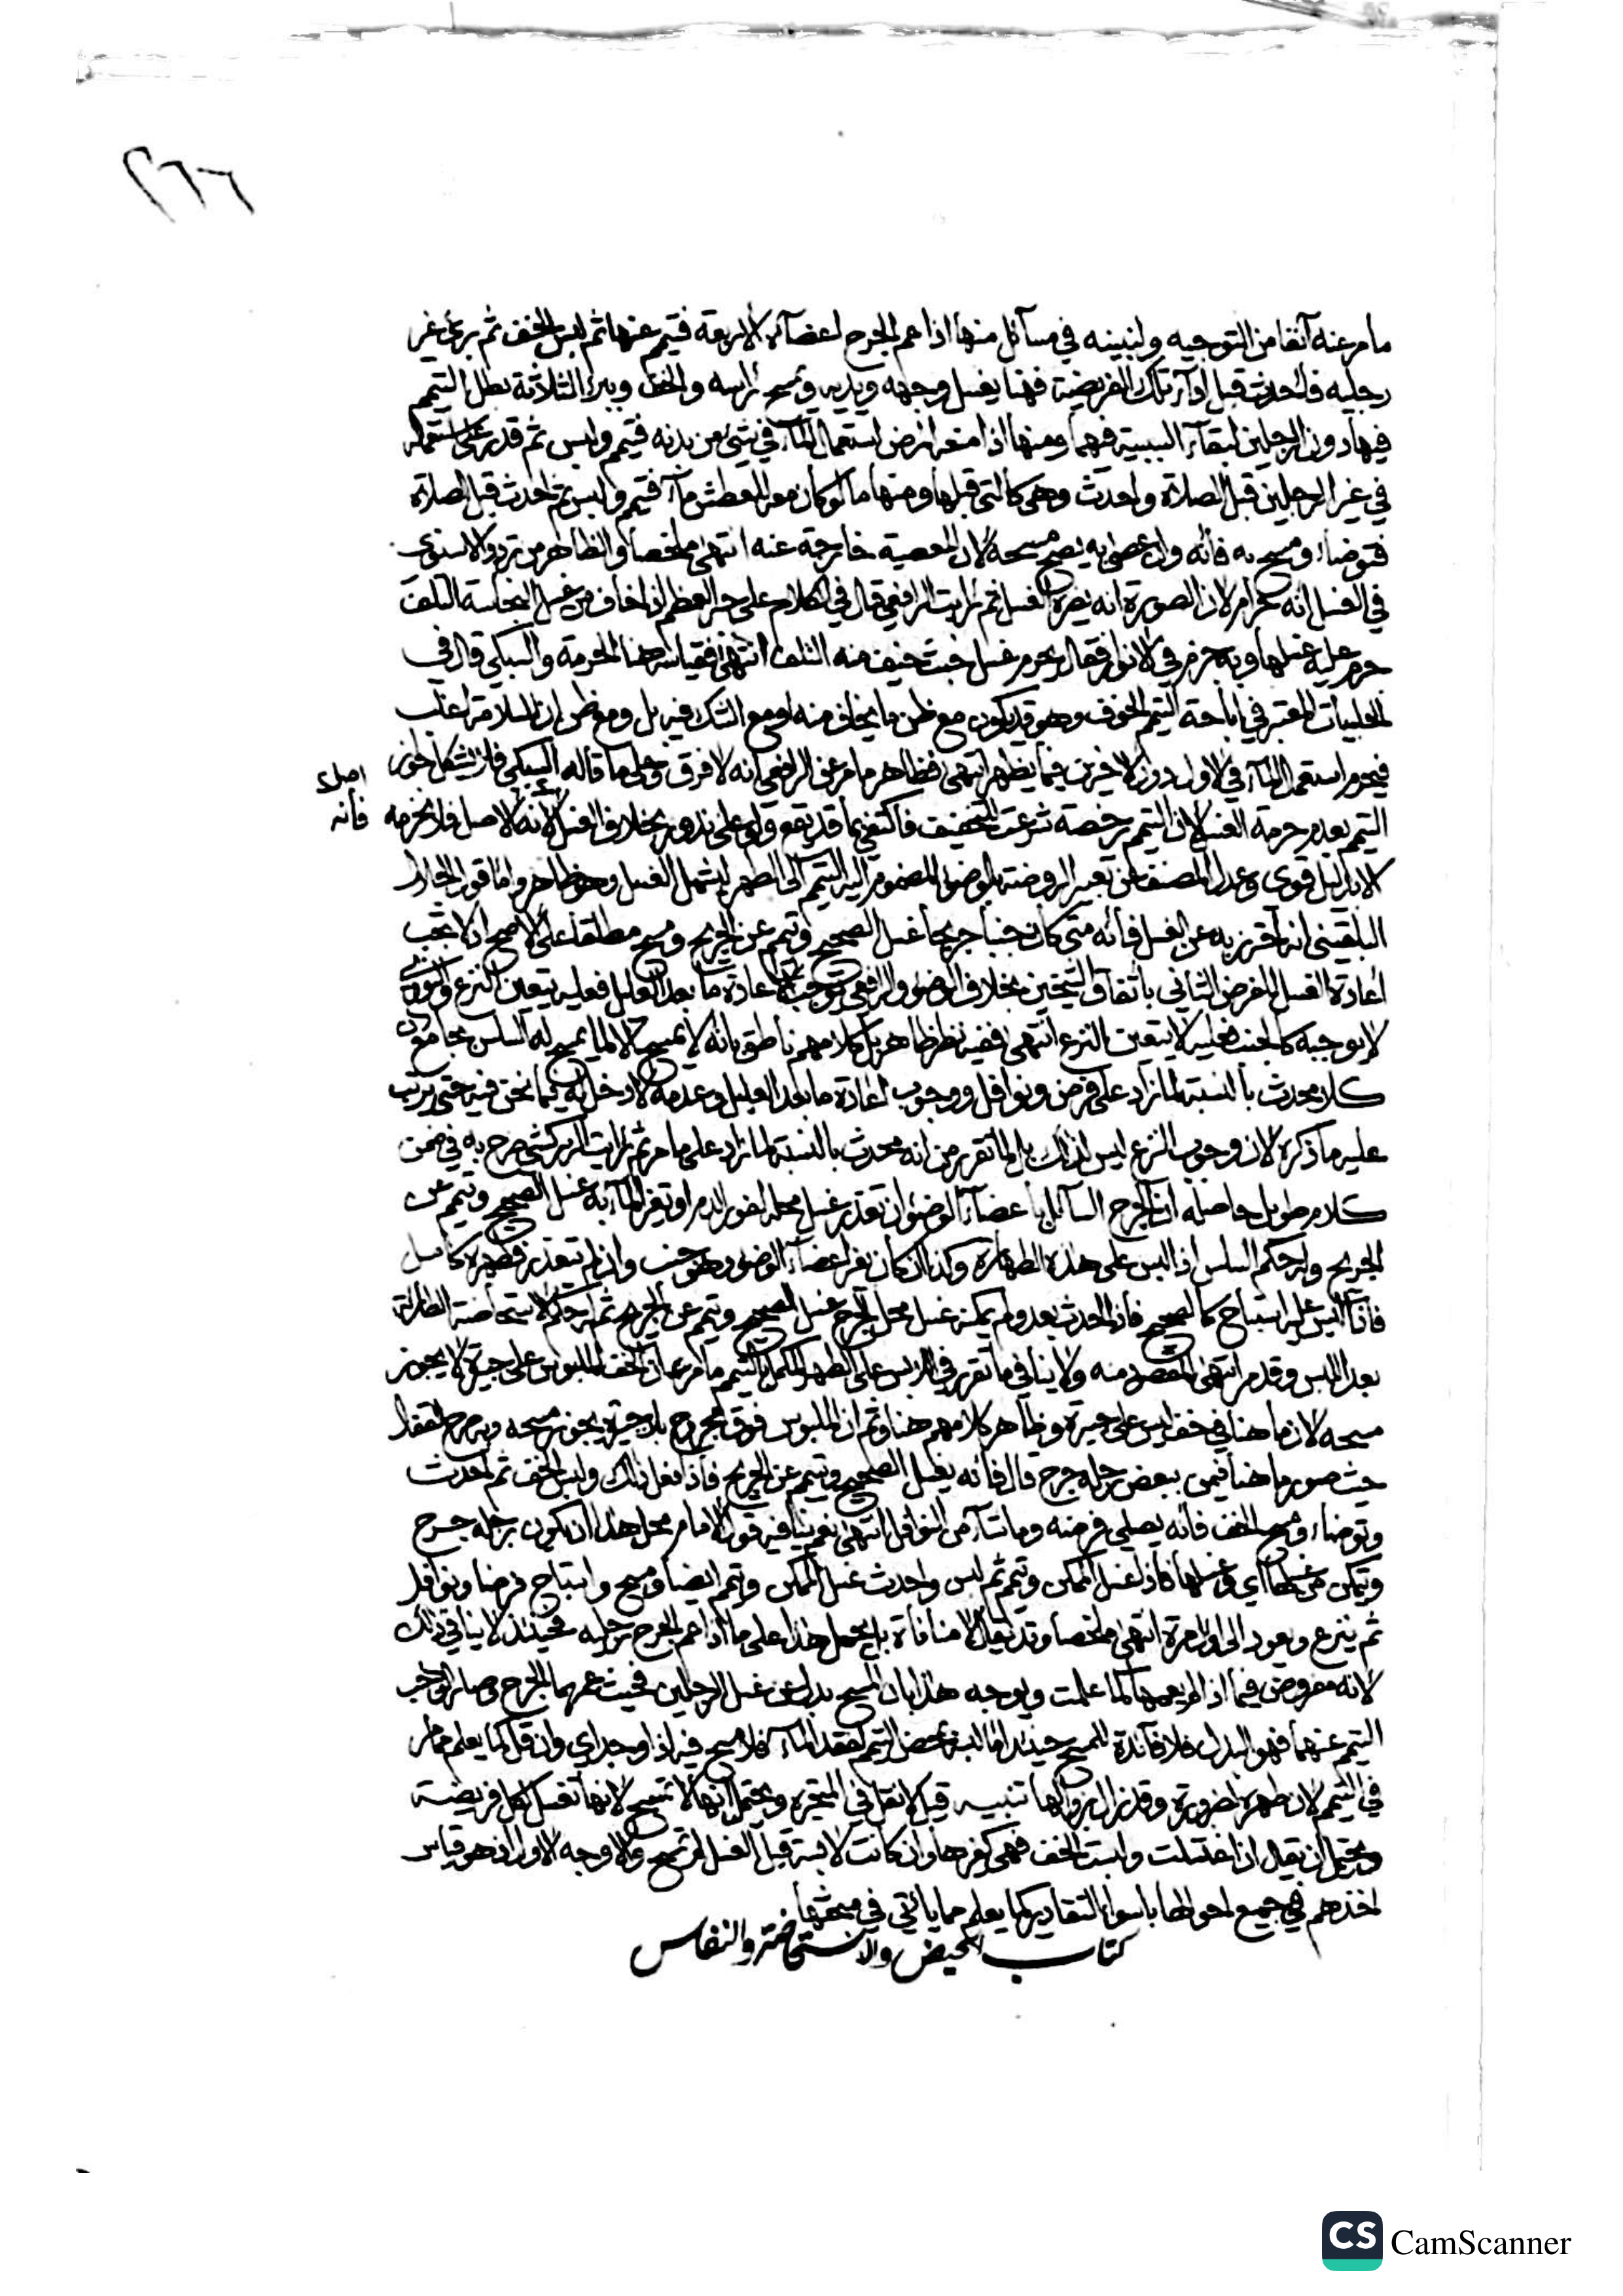 ٢٦٦
ما مر عنه آنفا من التوجيه ولنبينه في مسآئل منها اذا عم الجرح اعضآءه الاربعة فتيمم عنها ثم لبس الخف ثم برئ غير
رجليه فاحدث قبل ادآء تلك الفريضة فهنا يغسل وجهه ويديه ويمسح رأسه والخف وببرء الثلاثة بطل التيمم
فيها دون الرجلين لبقآء السببية فيهما ومنها اذا منعه مرض استعمال المآء في شئ من بدنه فتيمم ولبس ثم قدر على استعماله
في غير الرجلين قبل الصلاة واحدث وهي كالتي قبلها ومنها ما لو كان معه للعطش مآء فتيمم ولبس ثم احدث قبل الصلاة
فتوضاء ومسح به فانه وان عصى به يصح مسحه لان المعصية خارجة عنه انتهى ملخصا والظاهر من تردد الاسنوي
في الغسل انه حرام لان الصورة انه يضره الغسل ثم رايت الرافعي قال في الكلام على جبر العظم اذا خاف من غسل النجاسة التلف
حرم عليه غسلها وبه جزم في الانوار فقال يحرم غسل خبث خيف منه التلف انتهى فقياسه هنا الحرمة والسبكي قال في
الحلبيات المعتبر في اباحة التيمم الخوف وهو قد يكون مع ظن ما يخاف منه او مع الشك فيه بل ومع ظن ان السلامة اغلب
فيحرم استعمال المآء في الاول دون الاخيرين فيما يظهر انتهى فظاهر ما مر عن الرافعي انه لا فرق وعلى ما قاله السبكي فلا يشكل جواز
التيمم بعدم حرمة الغسل لان التيمم رخصة شرعت للتخفيف فاكتفي بما قد يقع ولو على ندور بخلاف الغسل لانه الاصل فلا نحرمه
اصل
فانه
الا بدليل قوي وعدل المصنف عن تعبير الروضة بالوضوء المضموم اليه التيمم الى الطهر ليشمل الغسل وهو ظاهر واما قول الجلال
البلقيني انه احترز به عن الغسل فانه متى كان جنبا جريحا غسل الصحيح وتيمم عن الجريح ومسح مطلقا على الاصح اذ لا يجب
اعادة الغسل للفرض الثاني باتفاق الشيخين بخلاف الوضوء والرافعي يوجب اعادة ما بعد العليل فعليه يتعين النزع والنووي
لا يوجبه كالجنب فعليه لا يتعين النزع انتهى ففيه نظر ظاهر بل كلامهم ناطق بانه لا يمسح الا لما يمسح له السلس بجامع ان
كلا محدث بالنسبة لما زاد على فرض ونوافل ووجوب اعادة ما بعد العليل وعدمه لا دخل له فيما نحن فيه حتى يرتب
عليه ما ذكره لان وجوب النزع ليس لذلك بل لما تقرر من انه محدث بالنسبة لما زاد على ما مر ثم رايت الزركشي صرح به في ضمن
كلام طويل حاصله ان الجرح السآئل باعضآء الوضوء ان تعذر غسل محله لفور الدم او تغير المآء به غسل الصحيح وتيمم عن
الجريح وله حكم السلس اذا لبس على هذه الطهارة وكذا ان كان بغير اعضآء الوضوء وهو جنب وان لم يتعذر فطهره كامل
فاذا لبس عليه استباح كالصحيح فاذا احدث بعد ولم يمكنه غسل محل الجرح غسل الصحيح وتيمم عن الجريح ثم له حكم الاستحاضة الطارئة
بعد اللبس وقد مر انتهى المقصود منه ولا ينافي ما تقرر في اللبس على الطهر المكمل بالتيمم ما مر من ان الخف الملبوس على جبيرة لا يجوز
مسحه لان ما هنا في خف لبس على غير جبيرة وظاهر كلامهم هنا وثم ان الملبوس فوق مجروح بلا جبيرة يجوز مسحه وبه صرح القفال
حيث صور ما هنا فيمن ببعض رجله جرح قال فانه يغسل الصحيح ويتيمم عن الجريح فاذا فعل ذلك ولبس الخف ثم احدث
وتوضاء ومسح الخف فانه يصلي فرضه وما شآء من النوافل انتهى نعم ينافيه قول الامام محل هذا ان يكون برجله جرح
ويمكن من غسلها اي وغسلها فاذا غسل الممكن وتيمم ثم لبس واحدث غسل الممكن وتيمم ايضا ومسح واستباح فرضا ونوافل
ثم ينزع ويعود الى اول امره انتهى ملخصا وقد يقال لا منافاة بل يحمل هذا على ما اذا عم الجرح رجليه فحينئذ لا ينافي ذلك
لانه مفروض فيما اذا لم يعمهما كما علمت ويوجه هذا بان المسح بدل عن غسل الرجلين فحيث عمهما الجرح وصار الواجب
التيمم عنهما فهو البدل فلا فآئدة للمسح حينئذ اما لبسه بمحض التيمم لفقد المآء فلا مسح فيه اذا وجد اي وان قل كما يعلم مما مر
في التيمم لان طهره لضرورة وقد زال بزوالها تنبيه قيل لا نقل في المتحيرة ويحتمل انها لا تمسح لانها تغتسل لكل فريضة
ويحتمل ان يقال اذا اغتسلت ولبست الخف فهي كغيرها وان كانت لابسة قبل الغسل لم تمسح والاوجه الاول اذ هو قياس
اخذهم في جميع احوالها باسواء التقادير كما يعلم مما يأتي في مبحثها
كتاب الحيض والاستحاضة والنفاس
CS CamScanner